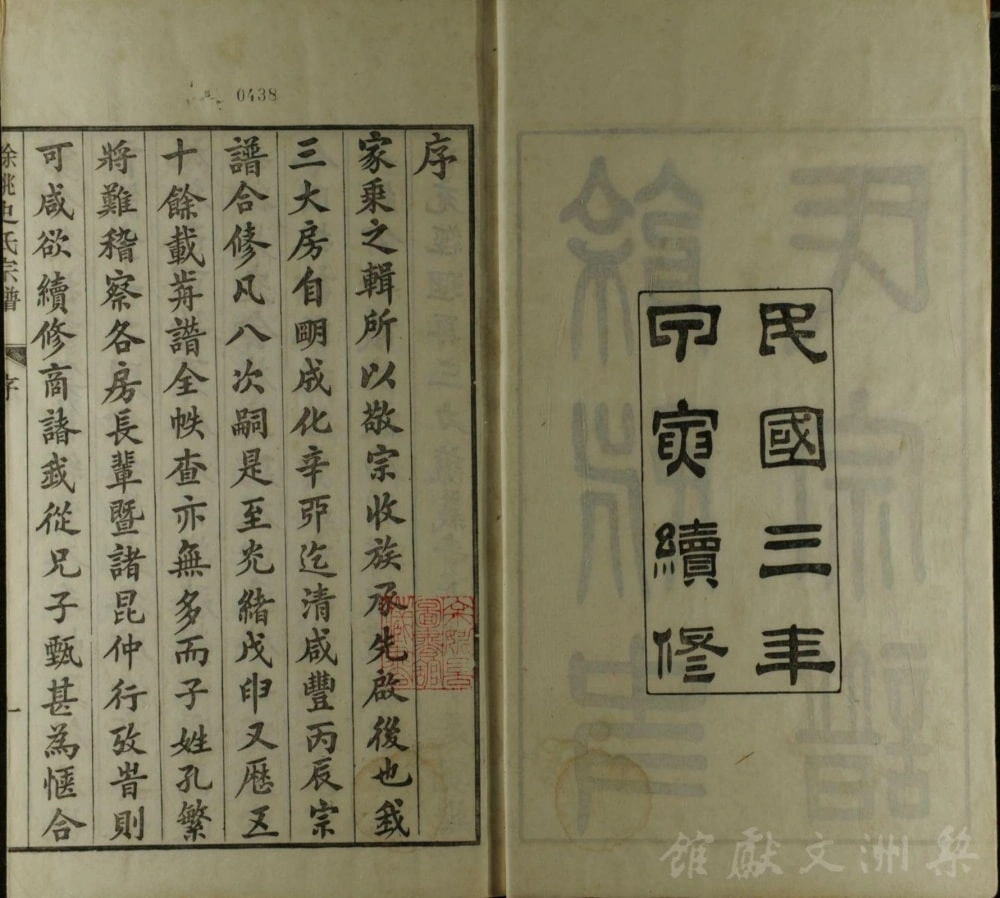 民國三年
甲寅續修
0438
序
家乘之輯所以敬宗收族承先啟後也我
三大房自朙成化辛丣迄清咸豐丙辰宗
譜合修凡八次嗣是至光緒戊申又歷五
十餘載歬譜全帙查亦無多而子姓孔繁
將難稽察各房長輩暨諸昆仲行攷旹則
可咸欲續修商諸我從兄子甄甚為愜合
餘姚史氏宗譜
序
一
梨洲文獻館